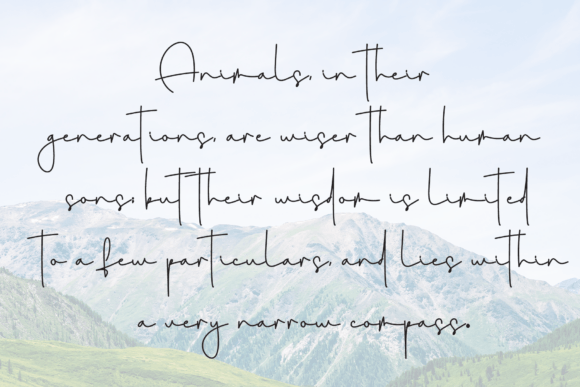 Animals, in their
generations, are wiser than human
sons; but their wisdom is limited
to a few particulars, and lies within
a very narrow compass.